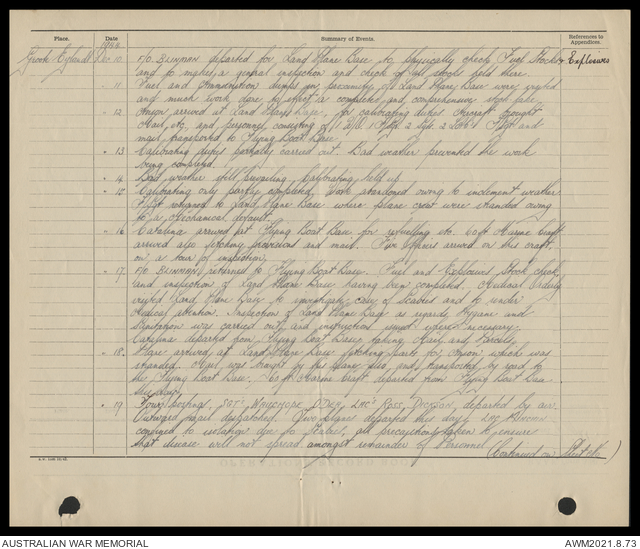 Place.
Date
Summary of Events.
References to Appendices.
1944
Groote Eylandt Dec 10 F/O BLINMAN departed for Land Plane Base to physically check Fuel Stocks & Explosives
and to make a general inspection and check of all stocks held there.
" 11 Fuel and Ammunition dumps in proximity of Land Plane Base were visited
and much work done to effect a complete and comprehensive stock take.
" 12 Anson arrived at Land Plane Base, for calibrating duties. Aircraft brought
Mail, etc. and personnel consisting of
mail transported to Flying Boat Base.
" 13 Calibrating duties partially carried out. Bad weather prevented the work
being completed.
" 14 Bad weather still prevailing, Calibrating held up.
" 15 Calibrating only partly completed, work abandoned owing to inclement weather.
Flight returned to Land Plane Base where plane crew were stranded owing
to a Mechanical default.
" 16 Catalina arrived at Flying Boat Base for refuelling etc. 60 ft Marine Craft
arrived also fetching provisions and mail. Officers arrived on this craft
on a tour of inspection.
" 17. F/O BLINMAN returned to Flying Boat Base. Fuel and Explosives Stock check
and inspections of Land Plane Base having been completed. Medical Orderly
visited Land Plane Base to investigate case of Scabies and to render
Medical attention. Inspection of Land Plane Base as regards Hygiene and
Sanitation was carried out and instructions issued where necessary.
Catalina departed from Flying Boat Base taking Mail and Parcels.
" 18. Plane arrived at Land Plane Base fetching parts for Anson which was
stranded. Mail was brought by this plane also and transported by road to
the Flying Boat Base. 60 ft Marine Craft departed from Flying Boat Base
this day.
" 19 Four postings, SGT'S WAUCHOPE, O'DEA, LAC'S ROSS, departed by air.
Outward mail despatched. Two planes departed this day. LAC
confined to isolation due to Scabies, all precautions taken to ensure
that disease will not spread amongst remainder of Personnel
(Continued on Sheet )
AUSTRALIAN WAR MEMORIAL
AWM2021.8.73